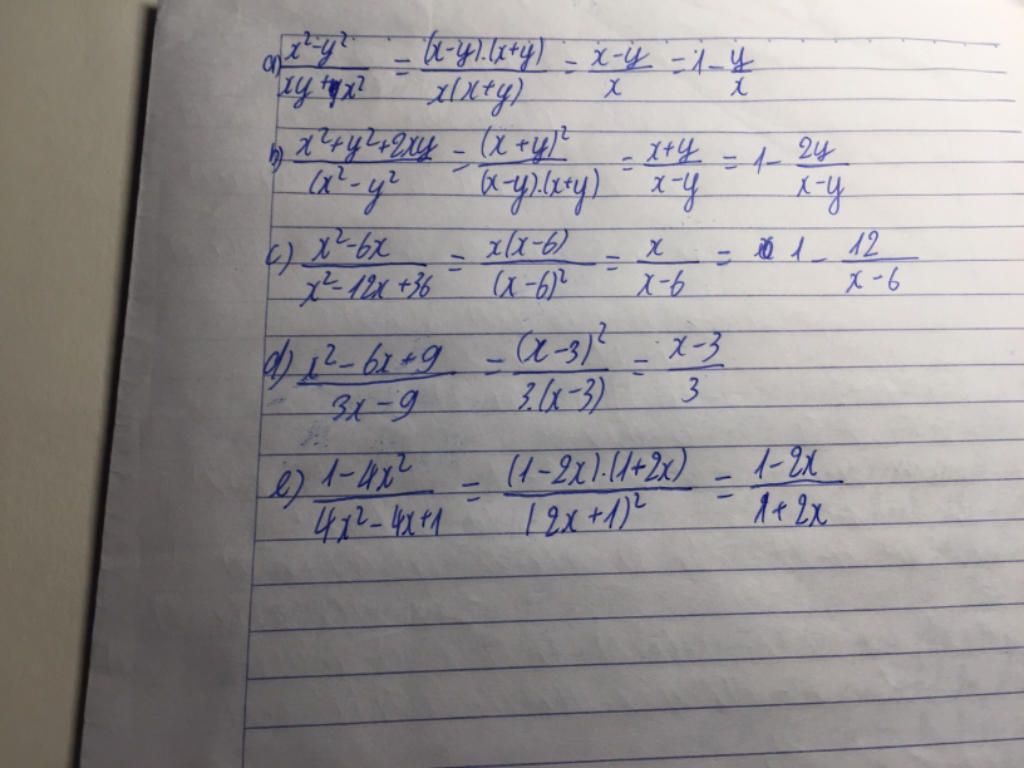 a) (x²-y²)/(xy+x²) = ((x-y).(x+y))/(x(x+y)) = (x-y)/x = 1 - y/x
b) (x²+y²+2xy)/(x²-y² = (x+y)²/((x-y).(x+y)) = (x+y)/(x-y) = 1 - 2y/(x-y)
c) (x²-6x)/(x²-12x+36) = (x(x-6))/(x-6)² = x/(x-6) = 1 - 12/(x-6)
d) (x²-6x+9)/(3x-9) = (x-3)²/(3.(x-3)) = (x-3)/3
e) (1-4x²)/(4x²-4x+1) = ((1-2x).(1+2x))/(2x+1)² = (1-2x)/(1+2x)